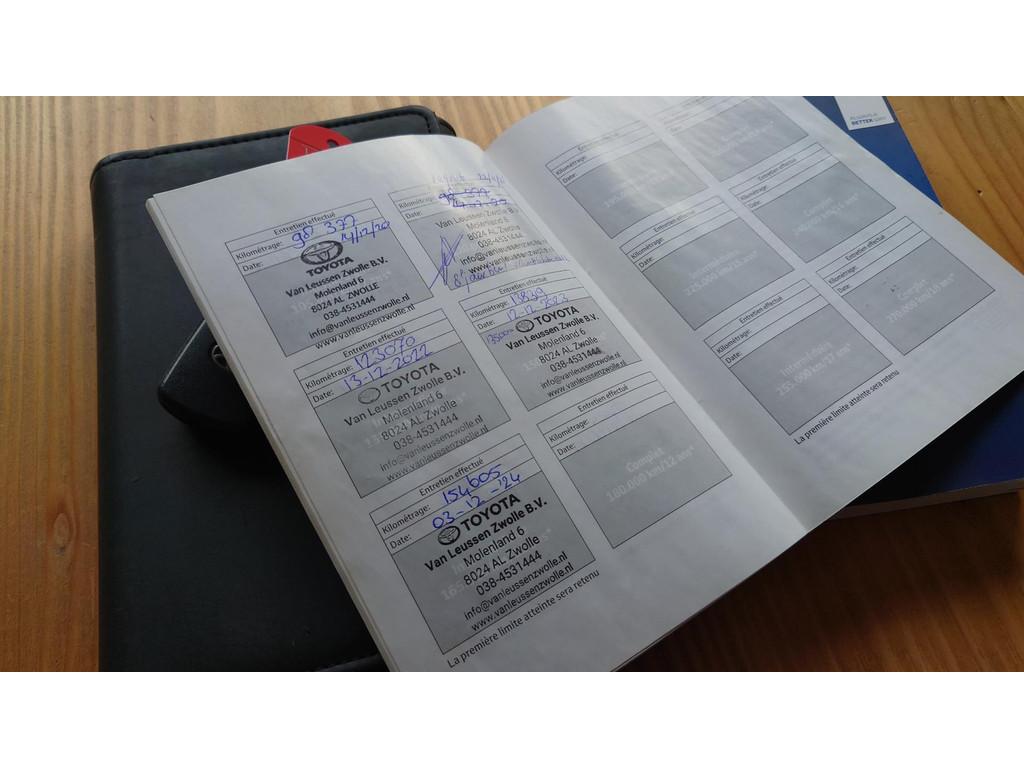 Entretien effectué
Kilométrage: 98 377
Date: 14/12/20
TOYOTA
Van Leussen Zwolle B.V.
Molenland 6
8024 AL ZWOLLE
038-4531444
info@vanleussenzwolle.nl
www.vanleussenzwolle.nl
Entretien effectué
Kilométrage: 123070
Date: 13-12-2022
TOYOTA
Van Leussen Zwolle B.V.
Molenland 6
8024 AL Zwolle
038-4531444
info@vanleussenzwolle.nl
www.vanleussenzwolle.nl
Entretien effectué
Kilométrage: 154605
Date: 03-12-'24
TOYOTA
Van Leussen Zwolle B.V.
Molenland 6
8024 AL Zwolle
038-4531444
info@vanleussenzwolle.nl
www.vanleussenzwolle.nl
La première limite atteinte sera retenu
Kilométrage: 98 377
Date:
Van Leussen Zwolle B.V.
Molenland 6
8024 AL Zwolle
038-4531444
info@vanleussenzwolle.nl
www.vanleussenzwolle.nl
Entretien effectué
Kilométrage: 13839
Date: 12-12-2023
TOYOTA
Van Leussen Zwolle B.V.
Molenland 6
8024 AL Zwolle
038-4531444
info@vanleussenzwolle.nl
www.vanleussenzwolle.nl
Entretien effectué
Kilométrage:
Date:
Complet
180.000 km/12 ans*
Entretien effectué
Kilométrage:
Date:
Entretien effectué
Kilométrage:
Date:
Intermédiaire
225.000 km/15 ans*
Entretien effectué
Kilométrage:
Date:
Intermédiaire
255.000 km/17 ans*
La première limite atteinte sera retenu
Kilométrage:
Date:
Entretien effectué
Kilométrage:
Date:
Complet
Entretien effectué
Kilométrage:
Date:
Complet
270.000 km/18 ans*
BETTER